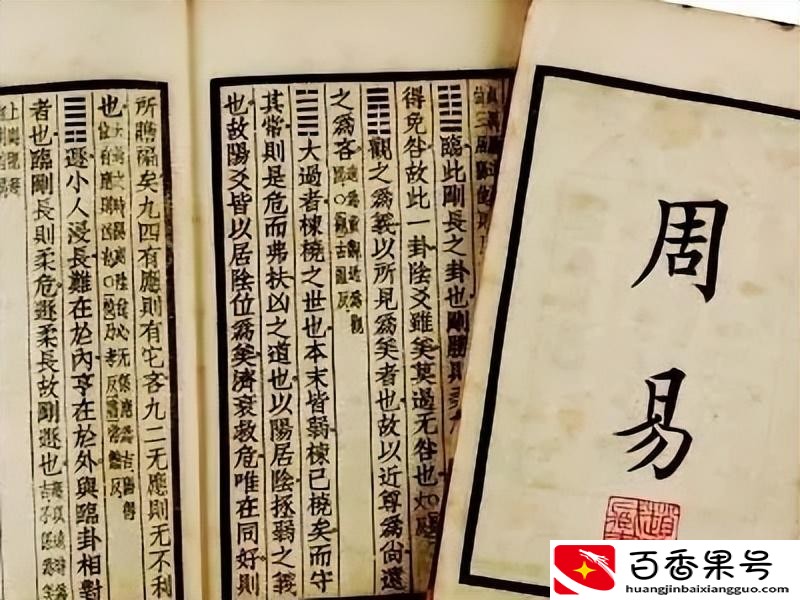 周易
䷒臨此剛長之卦也剛勝則柔
得免咎故此一卦陰爻雖美莫過无咎也
䷓觀之爲義以所見爲美者也故以近尊爲尚遠
之爲吝
䷛大過者棟橈之世也本末皆弱棟已橈矣而守
其常則是危而弗扶凶之道也以陽居陰拯弱之義
也故陽爻皆以居陰位爲美濟衰救危唯在同好則
所贍褊矣九四有應則有它吝九二无應則无不利
也
䷠遯小人浸長難在於內亨在於外與臨卦相對
者也臨剛長則柔危遯柔長故剛遯也
百香果号
huangjinbaixiangguo.com